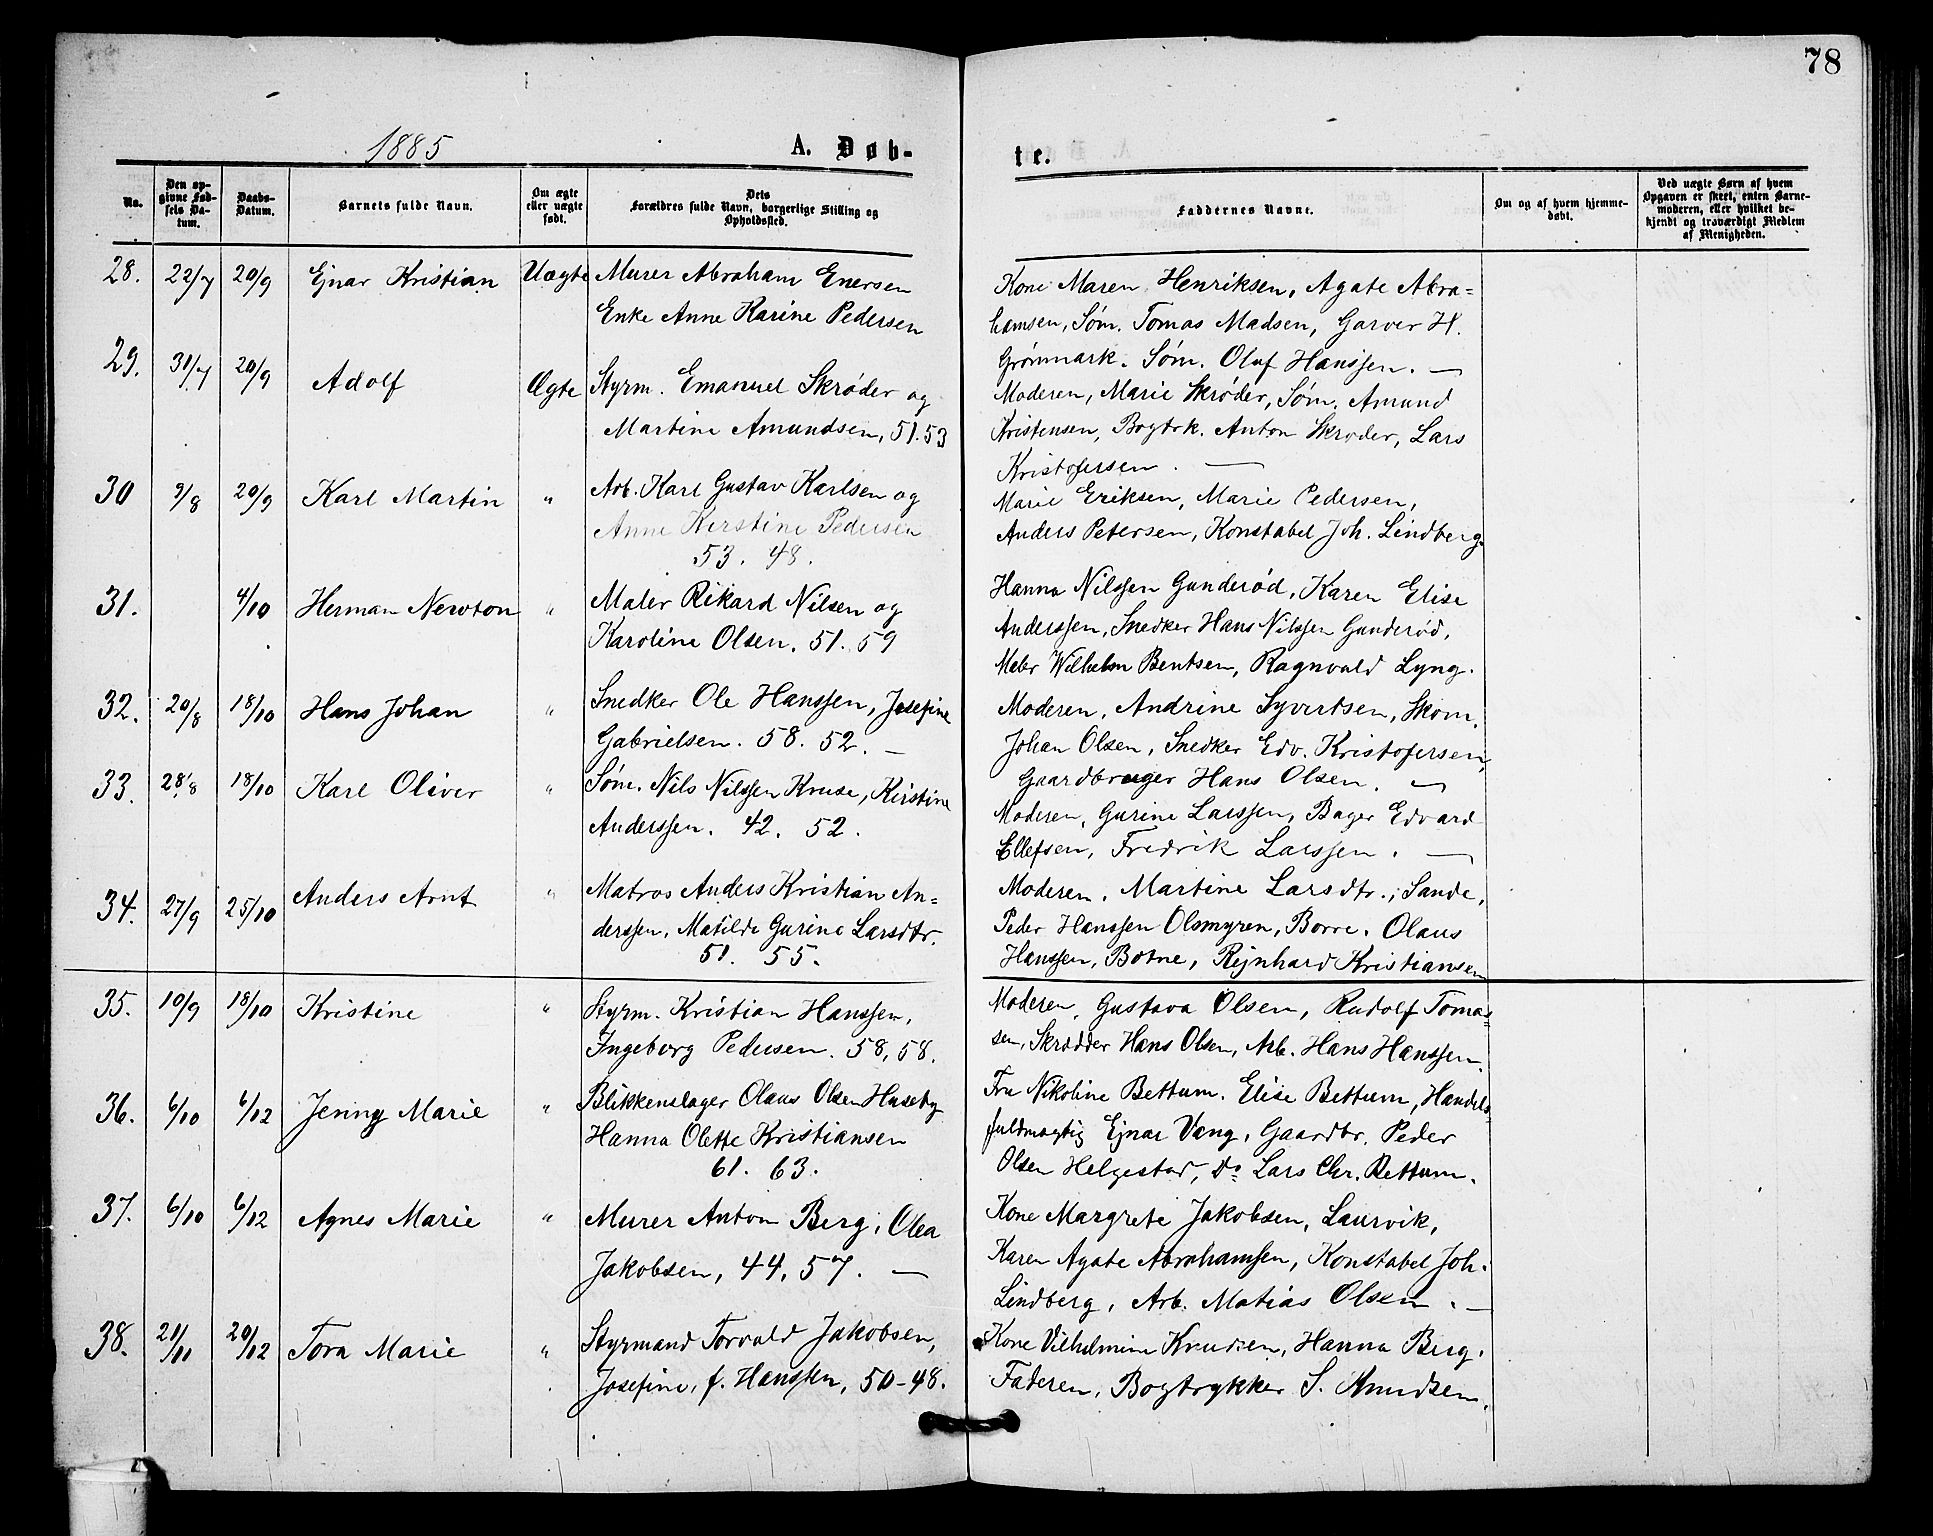 78
1885
A. Døb-
te.
No.
Den op-
givne Fød-
sels Da-
tum.
Daabs-
Datum.
Barnets fulde Navn.
Om ægte
eller uægte
født.
Dets
Forældres fulde Navn, borgerlige Stilling og
Opholdssted.
Faddernes Navne.
Om og af hvem hjemme-
døbt.
Ved uægte Børn af hvem
Opgaven er skeet, enten Barne-
moderen, eller hvilket be-
kjendt og troværdigt Medlem
af Menigheden.
28. 22/7 20/9 Ejnar Kristian Uægte Murer Abraham Enersen
Enke Anne Karine Pedersen
Kone Maren Henriksen, Agate Abra=
hamsen, Søm. Tomas Madsen, Garver H.
Grönmark. Søm. Oluf Hanssen. —
29. 31/7 20/9 Adolf Ægte Styrm. Emanuel Skrøder og
Martine Amundsen, 51.53
Moderen, Marie Skrøder, Søm. Amund
Kristensen, Bogtrk. Anton Skrøder, Lars
Kristofersen. —
30 9/8 20/9 Karl Martin " Arb. Karl Gustav Karlsen og
Anne Kirstine Pedersen
53. 48.
Marie Eriksen, Marie Pedersen,
Anders Petersen, Konstabel Joh. Lindberg.
31. 4/10 Herman Newton " Maler Rikard Nilsen og
Karoline Olsen. 51. 59
Hanna Nilssen Gunderød, Karen Elise
Anderssen, Snedker Hans Nilssen Gunderød,
Maler Wilhelm Bentsen, Ragnvald Lyng.
32. 20/8 18/10 Hans Johan " Snedker Ole Hanssen, Josefine
Gabrielsen. 58. 52. —
Moderen, Andrine Syvertsen, Skom.
Johan Olsen, Snedker Edv. Kristofersen,
Gaardbruger Hans Olsen. —
33. 28/8 18/10 Karl Oliver " Søm. Nils Nilssen Kruse, Kirstine
Anderssen. 42. 52.
Moderen, Gurine Larssen, Bager Edvard
Ellefsen, Fredrik Larssen. —
34. 27/9 25/10 Anders Arnt " Matros Anders Kristian An=
derssen, Matilde Gurine Larsdtr.
51. 55.
Moderen. Martine Larsdtr., Sande,
Peder Hanssen Olsmyren, Borre. Olaus
Hanssen, Botne, Rejnhard Kristiansen
35. 10/9 18/10 Kristine " Styrm. Kristian Hanssen,
Ingeborg Pedersen. 58, 58.
Moderen, Gustava Olsen, Rudolf Tomas=
sen, Skrædder Hans Olsen, Arb. Hans Hanssen.
36. 6/10 6/12 Jenny Marie " Blikkenslager Olaus Olsen Huseby
Hanna Olette Kristiansen
61. 63.
Fru Nikoline Bettum. Elise Bettum, Handels
fuldmægtig Ejnar Vang, Gaardbr. Peder
Olsen Helgestad, Do Lars Chr. Bettum.
37. 6/10 6/12 Agnes Marie " Murer Anton Berg, Olea
Jakobsen, 44, 57. —
Kone Margrete Jakobsen, Laurvik,
Karen Agate Abrahamsen, Konstabel Joh.
Lindberg, Arb. Matias Olsen. —
38. 21/11 20/12 Tora Marie " Styrmand Torvald Jakobsen,
Josefine, f. Hanssen, 50-48.
Kone Vilhelmine Knudsen, Hanna Berg.
Faderen, Bogtrykker S. Knudsen.